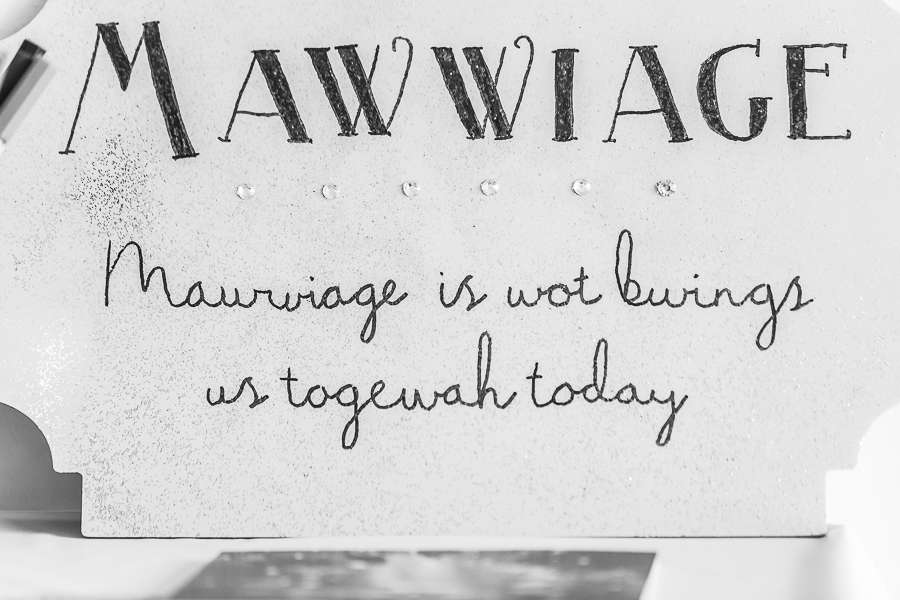 MAWWIAGE
Mawwiage is wot bwings
us togewah today